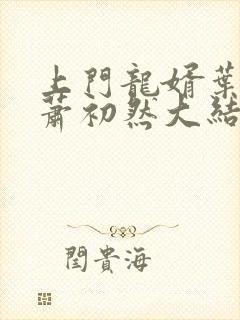 上門龍婿葉
蕭初然大結
閆貴海